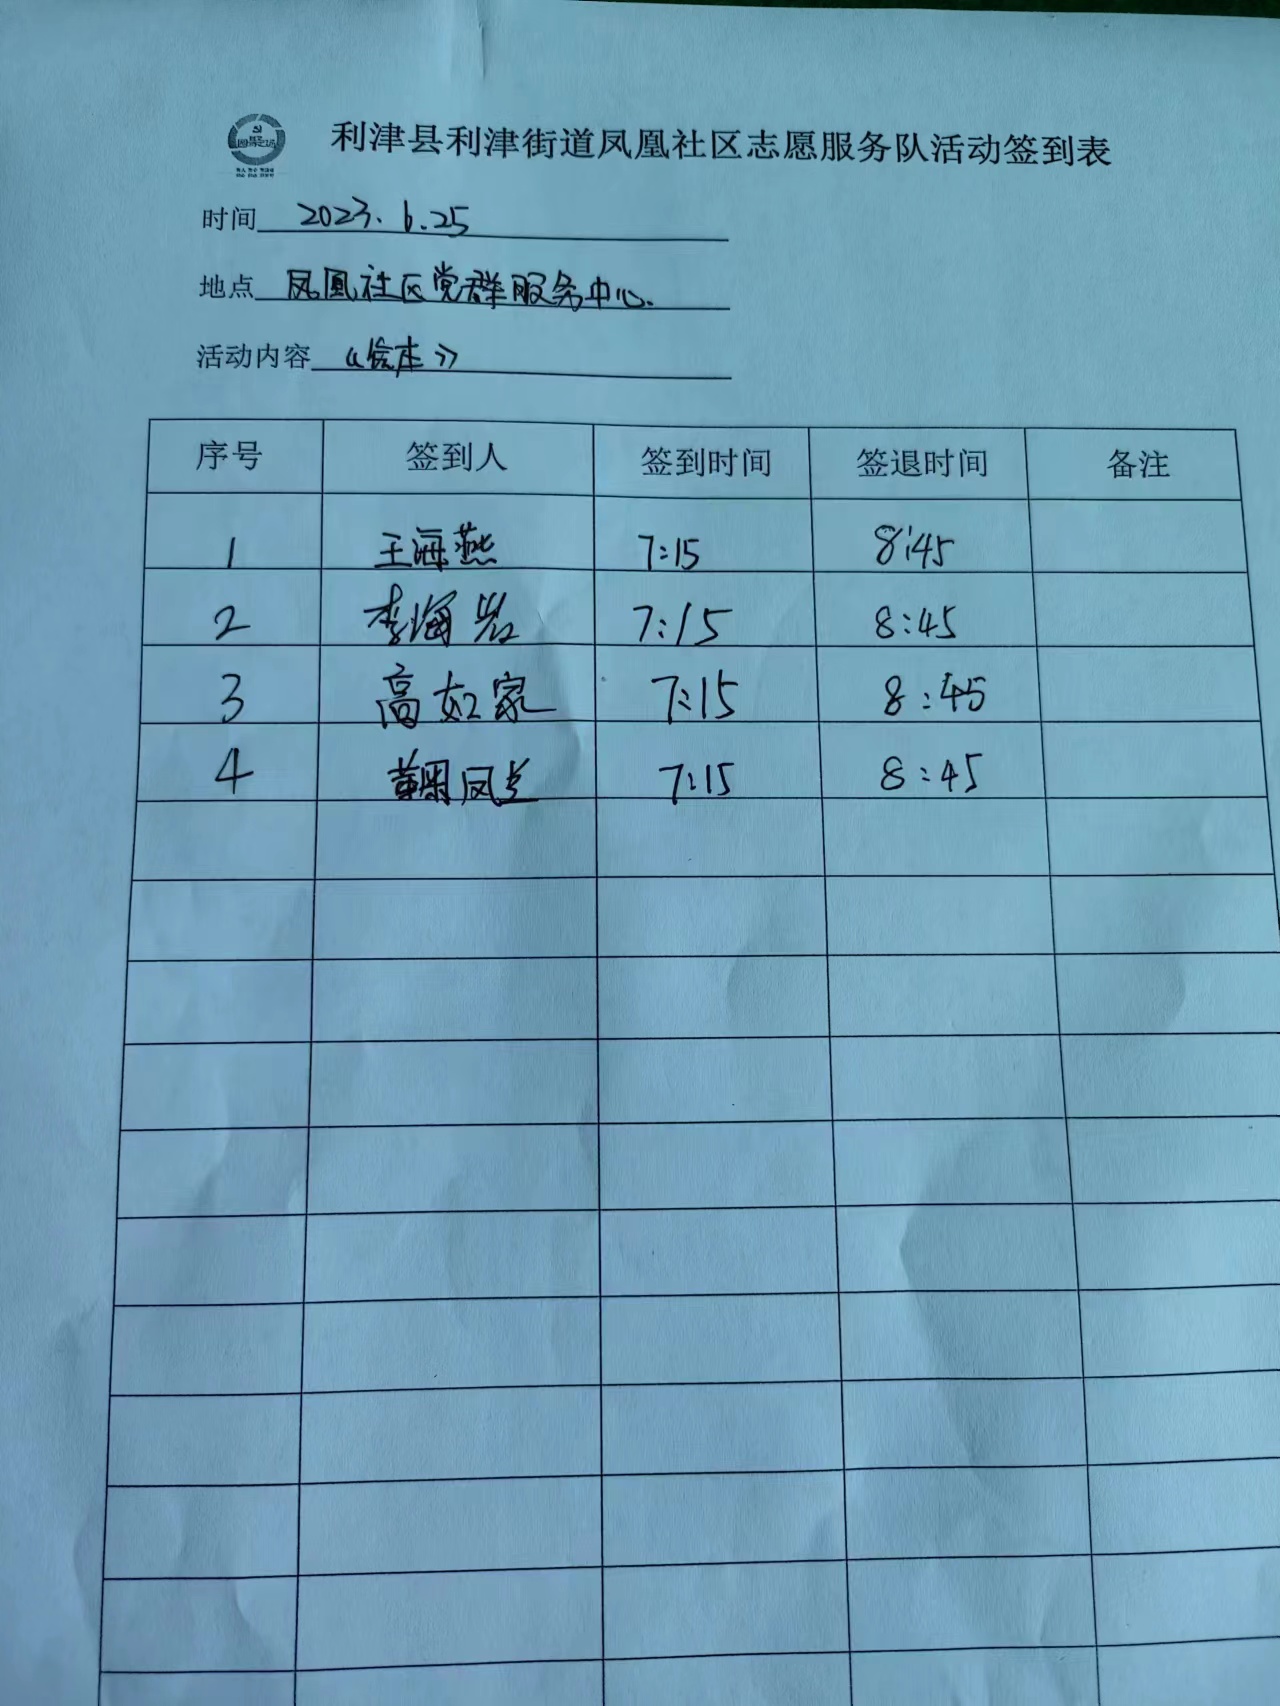 利津县利津街道凤凰社区志愿服务队活动签到表
时间 2023.6.25
地点 凤凰社区党群服务中心.
活动内容 《绘本》
序号 签到人 签到时间 签退时间 备注
1 王海燕 7:15 8:45
2 李海岩 7:15 8:45
3 高如家 7:15 8:45
4 鞠凤 7:15 8:45